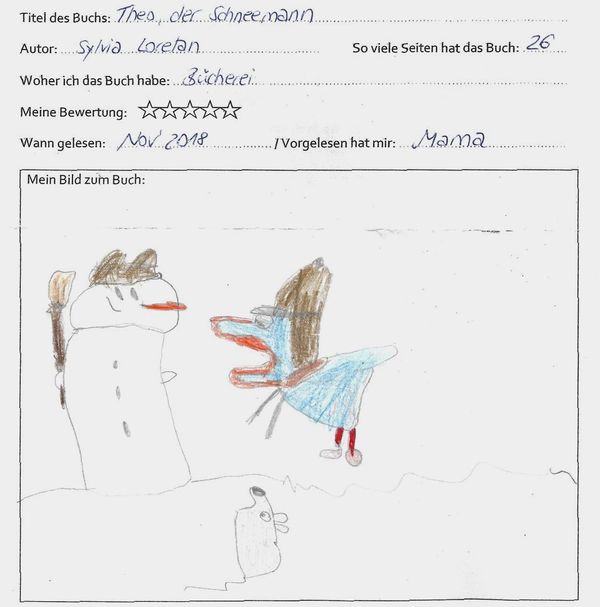 Titel des Buchs: Theo, der Schneemann
Autor: Sylvia Loretan So viele Seiten hat das Buch: 26
Woher ich das Buch habe: Bücherei
Meine Bewertung:
Wann gelesen: Nov 2018 / Vorgelesen hat mir: Mama
Mein Bild zum Buch: